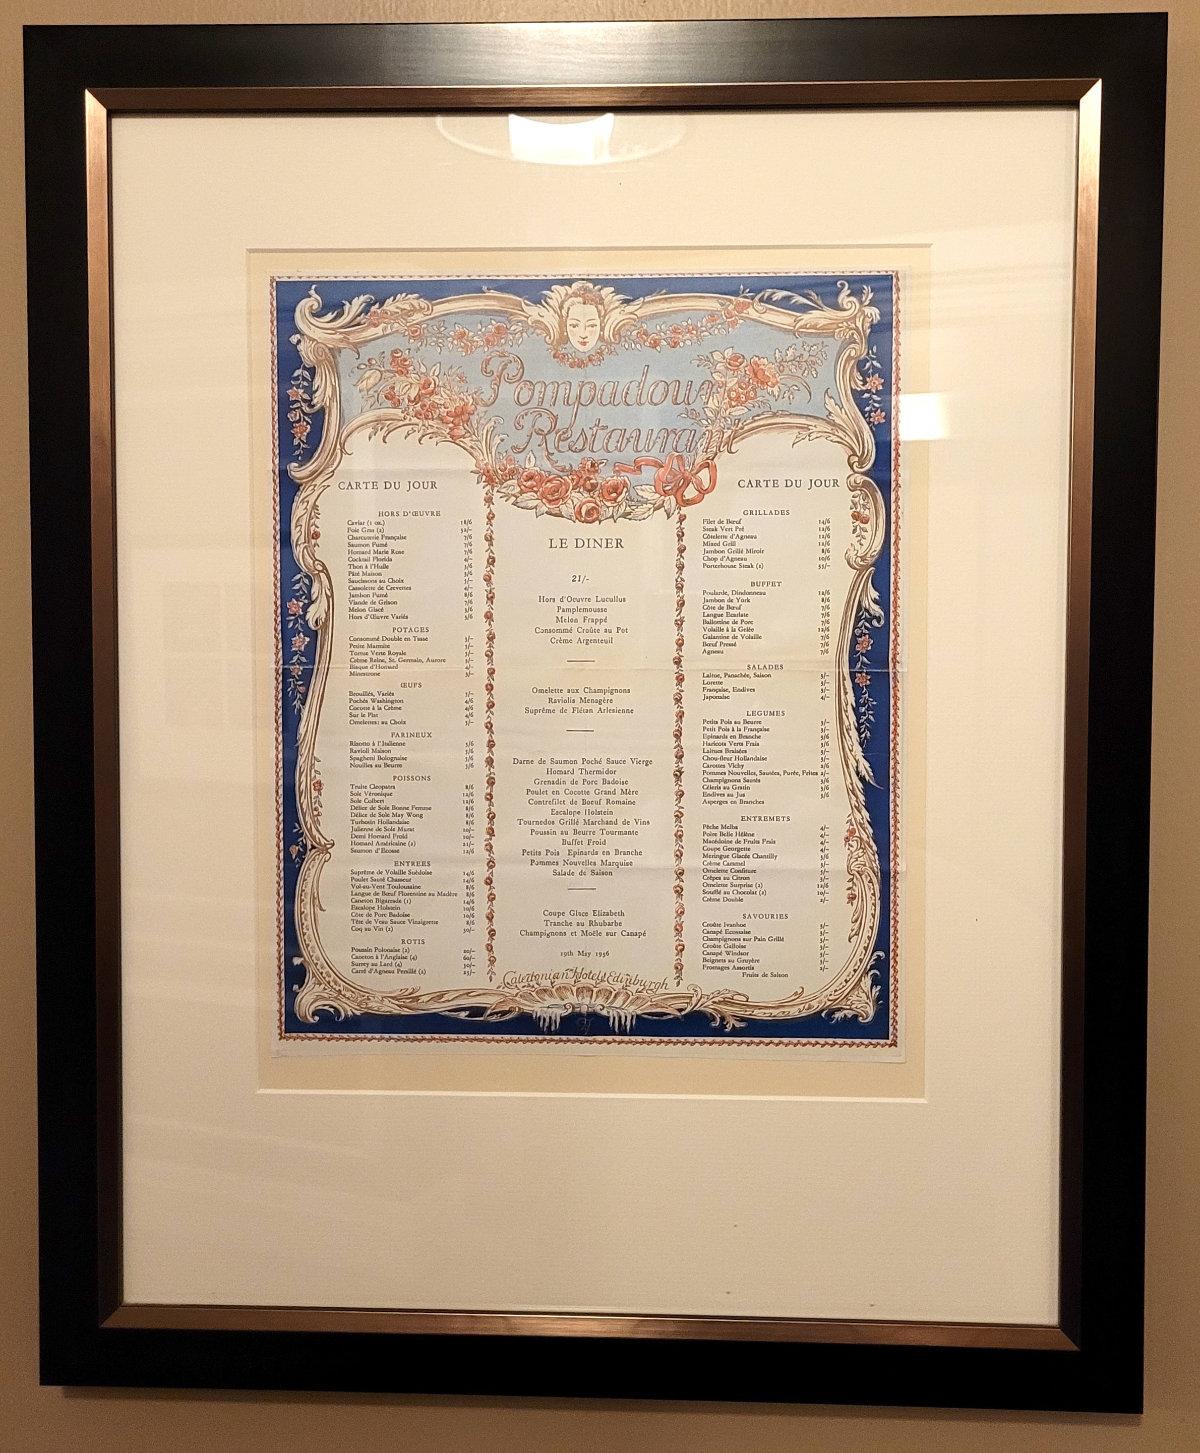 Pompadour
Restaurant
CARTE DU JOUR
HORS D'ŒUVRE
Caviar (1 oz.) 18/6
Foie Gras (2) 32/-
Charcuterie Française 7/6
Saumon Fumé 7/6
Homard Marie Rose 7/6
Cocktail Florida 4/-
Thon à l'Huile 3/6
Pâté Maison 3/6
Saucissons au Choix 5/-
Cassolette de Crevettes 4/-
Jambon Fumé 8/6
Viande de Grison 7/6
Melon Glacé 3/6
Hors d'Œuvre Variés 5/6
POTAGES
Consommé Double en Tasse 3/-
Petite Marmite 3/-
Tortue Verte Royale 5/-
Crème Reine, St. Germain, Aurore 3/-
Bisque d'Homard 4/-
Minestrone 3/-
ŒUFS
Brouillés, Variés 5/-
Pochés Washington 4/6
Cocotte à la Crème 4/6
Sur le Plat 4/6
Omelettes: au Choix 5/-
FARINEUX
Risotto à l'Italienne 5/6
Ravioli Maison 5/6
Spagheni Bolognaise 5/6
Nouilles au Beurre 5/6
POISSONS
Truite Cleopatra 8/6
Sole Véronique 12/6
Sole Colbert 12/6
Délice de Sole Bonne Femme 8/6
Délice de Sole May Wong 8/6
Turbotin Hollandaise 8/6
Julienne de Sole Murat 10/-
Demi Homard Froid 10/-
Homard Américaine (2) 21/-
Saumon d'Ecosse 12/6
ENTREES
Suprême de Volaille Suédoise 14/6
Poulet Sauté Chasseur 14/6
Vol-au-Vent Toulousaine 8/6
Langue de Bœuf Florentine au Madère 8/6
Caneton Bigarrade (1) 14/6
Escalope Holstein 10/6
Côte de Porc Badoise 10/6
Tête de Veau Sauce Vinaigrette 8/6
Coq au Vin (2) 30/-
ROTIS
Poussin Polonaise (2) 20/-
Caneton à l'Anglaise (4) 60/-
Surrey au Lard (4) 50/-
Carré d'Agneau Persillé (2) 25/-
LE DINER
21/-
Hors d'Oeuvre Lucullus
Pamplemousse
Melon Frappé
Consommé Croûte au Pot
Crème Argenteuil
Omelette aux Champignons
Raviolis Menagère
Suprême de Flétan Arlesienne
Darne de Saumon Poché Sauce Vierge
Homard Thermidor
Grenadin de Porc Badoise
Poulet en Cocotte Grand Mère
Contrefilet de Boeuf Romaine
Escalope Holstein
Tournedos Grillé Marchand de Vins
Poussin au Beurre Tourmante
Buffet Froid
Petits Pois Epinards en Branche
Pommes Nouvelles Marquise
Salade de Saison
Coupe Glace Elizabeth
Tranche au Rhubarbe
Champignons et Moëlle sur Canapé
19th May 1956
CARTE DU JOUR
GRILLADES
Filet de Bœuf 14/6
Steak Vert Pré 12/6
Côtelette d'Agneau 12/6
Mixed Grill 12/6
Jambon Grillé Miroir 8/6
Chop d'Agneau 10/6
Porterhouse Steak (2) 35/-
BUFFET
Poularde, Dindonneau 12/6
Jambon de York 8/6
Côte de Bœuf 7/6
Langue Ecarlate 7/6
Ballottine de Porc 7/6
Volaille à la Gelée 12/6
Galantine de Volaille 7/6
Bœuf Pressé 7/6
Agneau 7/6
SALADES
Laitue, Panachée, Saison 3/-
Lorette 3/-
Française, Endives 3/-
Japonaise 4/-
LEGUMES
Petits Pois au Beurre 3/-
Petit Pois à la Française 3/-
Epinards en Branche 3/6
Haricots Verts Frais 3/6
Laitues Braisées 3/-
Chou-fleur Hollandaise 3/-
Carottes Vichy 3/-
Pommes Nouvelles, Sautées, Purée, Frites 2/-
Champignons Sautés 3/6
Céleris au Gratin 3/6
Endives au Jus 3/6
Asperges en Branches
ENTREMETS
Pêche Melba 4/-
Poire Belle Hélène 4/-
Macédoine de Fruits Frais 4/-
Coupe Georgette 4/-
Meringue Glacée Chantilly 3/6
Crème Caramel 3/-
Omelette Confiture 5/-
Crêpes au Citron 5/-
Omelette Surprise (2) 12/6
Soufflé au Chocolat (2) 10/-
Crème Double 2/-
SAVOURIES
Croûte Ivanhoe 3/-
Canapé Ecossaise 3/-
Champignons sur Pain Grillé 3/-
Croûte Galloise 3/-
Canapé Windsor 3/-
Beignets au Gruyère 3/-
Fromages Assortis 2/-
Fruits de Saison
Caledonian Hotel Edinburgh